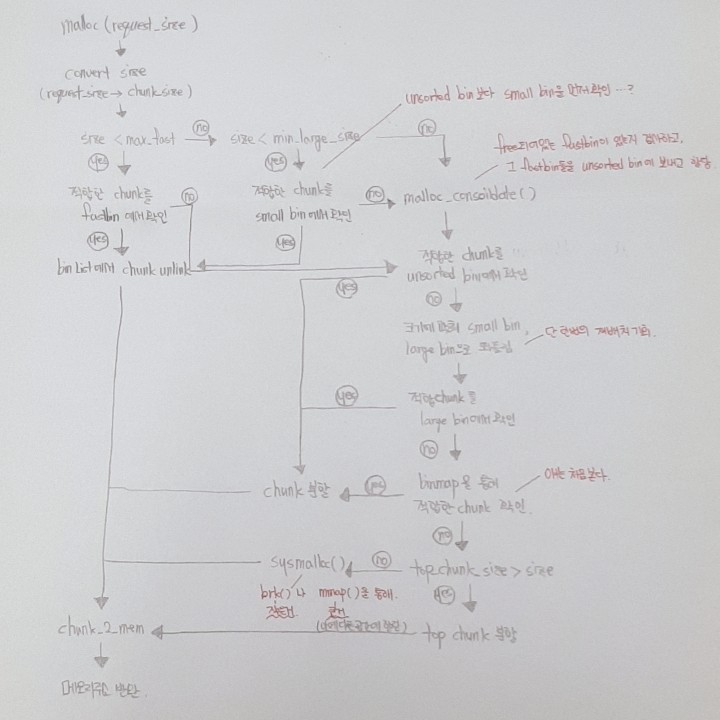 malloc (request_size)
convert size
(request_size → chunk_size)
unsorted bin 보다 small bin을 먼저 확인 …?
size < max_fast
no
size < min_large_size
no
free되어있는 fastbin이 있는지 검사하고,
그 fastbin들을 unsorted bin에 보내고 합당
yes
yes
적합한 chunk를
fastbin에서 확인
no
적합한 chunk를
small bin에서 확인
no
malloc_consolidate()
yes
yes
bin list에서 chunk unlink
적합한 chunk를
unsorted bin에서 확인
yes
no
크기에 따라 small bin,
large bin으로
단 한번의 재배치 기회.
적합chunk를
large bin에서 확인
yes
no
chunk 분할
yes
binmap을 통해
적합한 chunk 확인.
얘는 처음본다.
no
sysmalloc()
no
top_chunk_size > size
brk()나 mmap()을 통해.
yes
chunk_2_mem
top chunk 분할
메모리주소 반환.